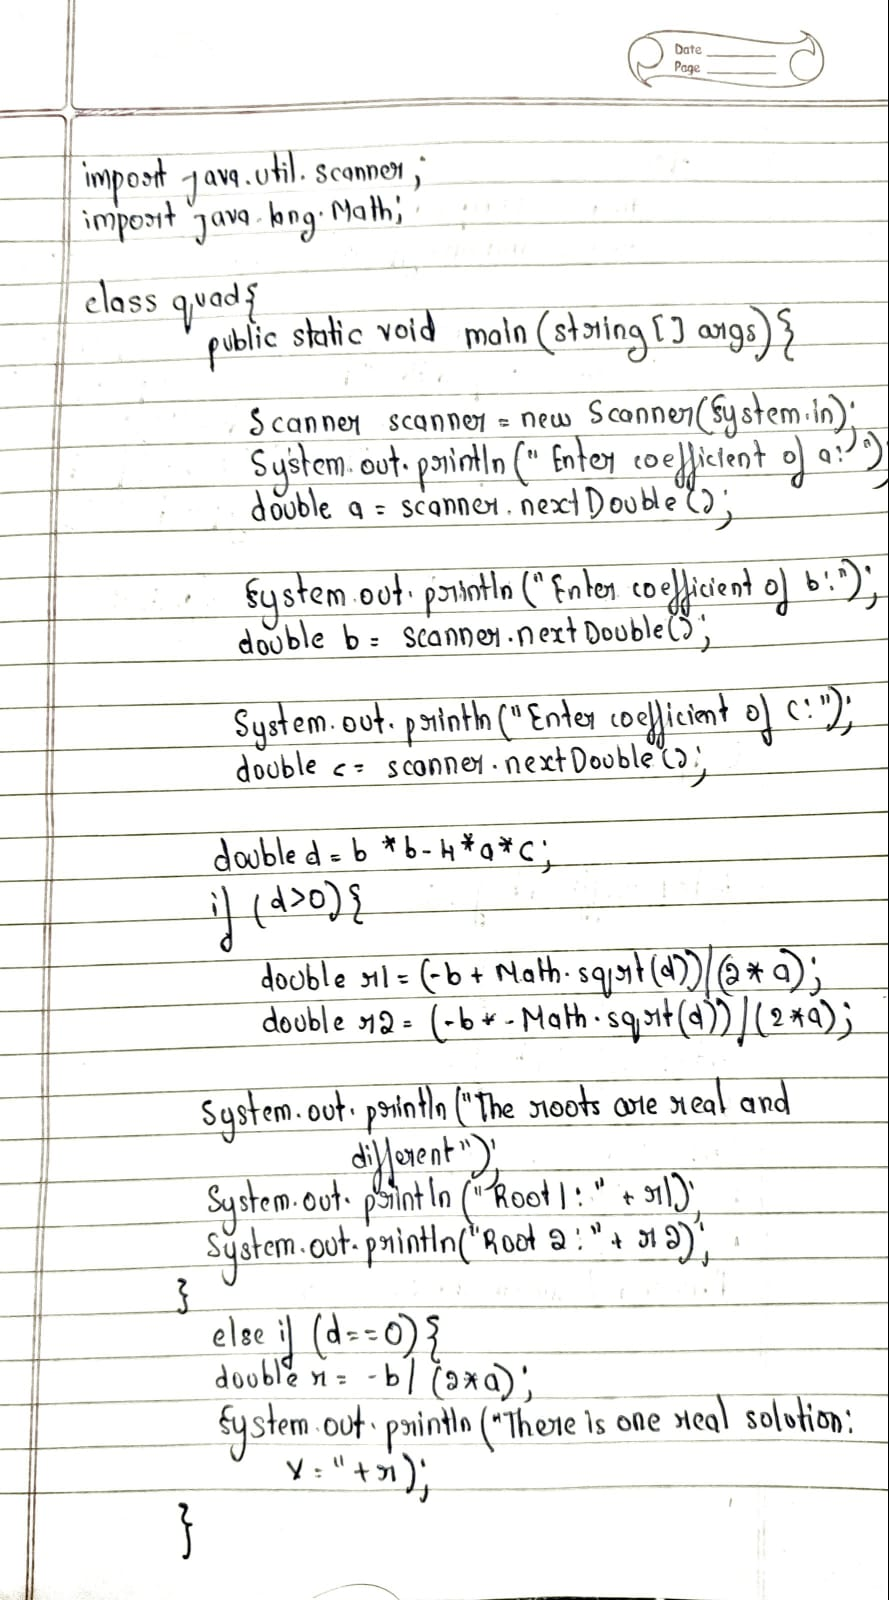 Date
Page
import java.util.scanner;
import java.lang.Math;
class quad{
public static void main (string [] args) {
Scanner scanner = new Scanner(System.in);
System.out.println (" Enter coefficient of a:")
double a = scanner.nextDouble();
System.out.println ("Enter coefficient of b:");
double b = scanner.nextDouble();
System.out.println ("Enter coefficient of c:");
double c = scanner.nextDouble();
double d = b * b - 4 * a * c;
if (d>0) {
double r1 = (-b + Math.sqrt(d))/(2 * a);
double r2 = (-b - Math.sqrt(d))/(2 * a);
System.out.println ("The roots are real and
different");
System.out.println ("Root 1: " + r1);
System.out.println("Root 2: " + r2);
}
else if (d==0) {
double r = -b / (2*a);
System.out.println ("There is one real solution:
x = " + r);
}